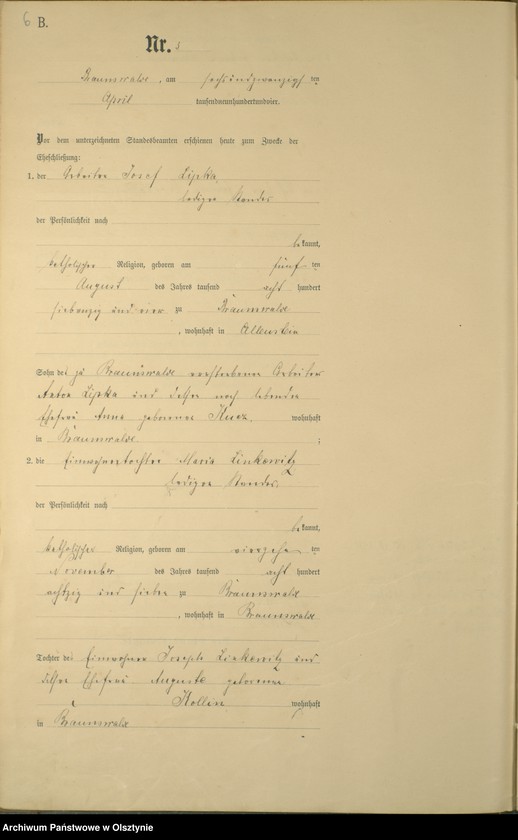 6 B.
Nr. 5
Braunswalde, am sechsundzwanzigsten
April tausendneunhundertundvier.
Vor dem unterzeichneten Standesbeamten erschienen heute zum Zwecke der
Eheschließung:
1. der Arbeiter Josef Lipka,
lediger Standes
der Persönlichkeit nach
bekannt,
katholischer Religion, geboren am fünf ten
August des Jahres tausend acht hundert
siebenzig und vier zu Braunswalde
, wohnhaft in Allenstein
Sohn des zu Braunswalde verstorbenen Arbeiters
Anton Lipka und dessen noch lebenden
Ehefrau Anna geborenen wohnhaft
in Braunswalde ;
2. die Einwohnertochter Maria Linkewitz
lediger Standes,
der Persönlichkeit nach
bekannt,
katholischer Religion, geboren am vierzehn ten
November des Jahres tausend acht hundert
achtzig und sieben zu Braunswalde
, wohnhaft in Braunswalde
Tochter des Einwohners Joseph Linkewitz und
dessen Ehefrau Auguste geborenen
wohnhaft
in Braunswalde
Archiwum Państwowe w Olsztynie